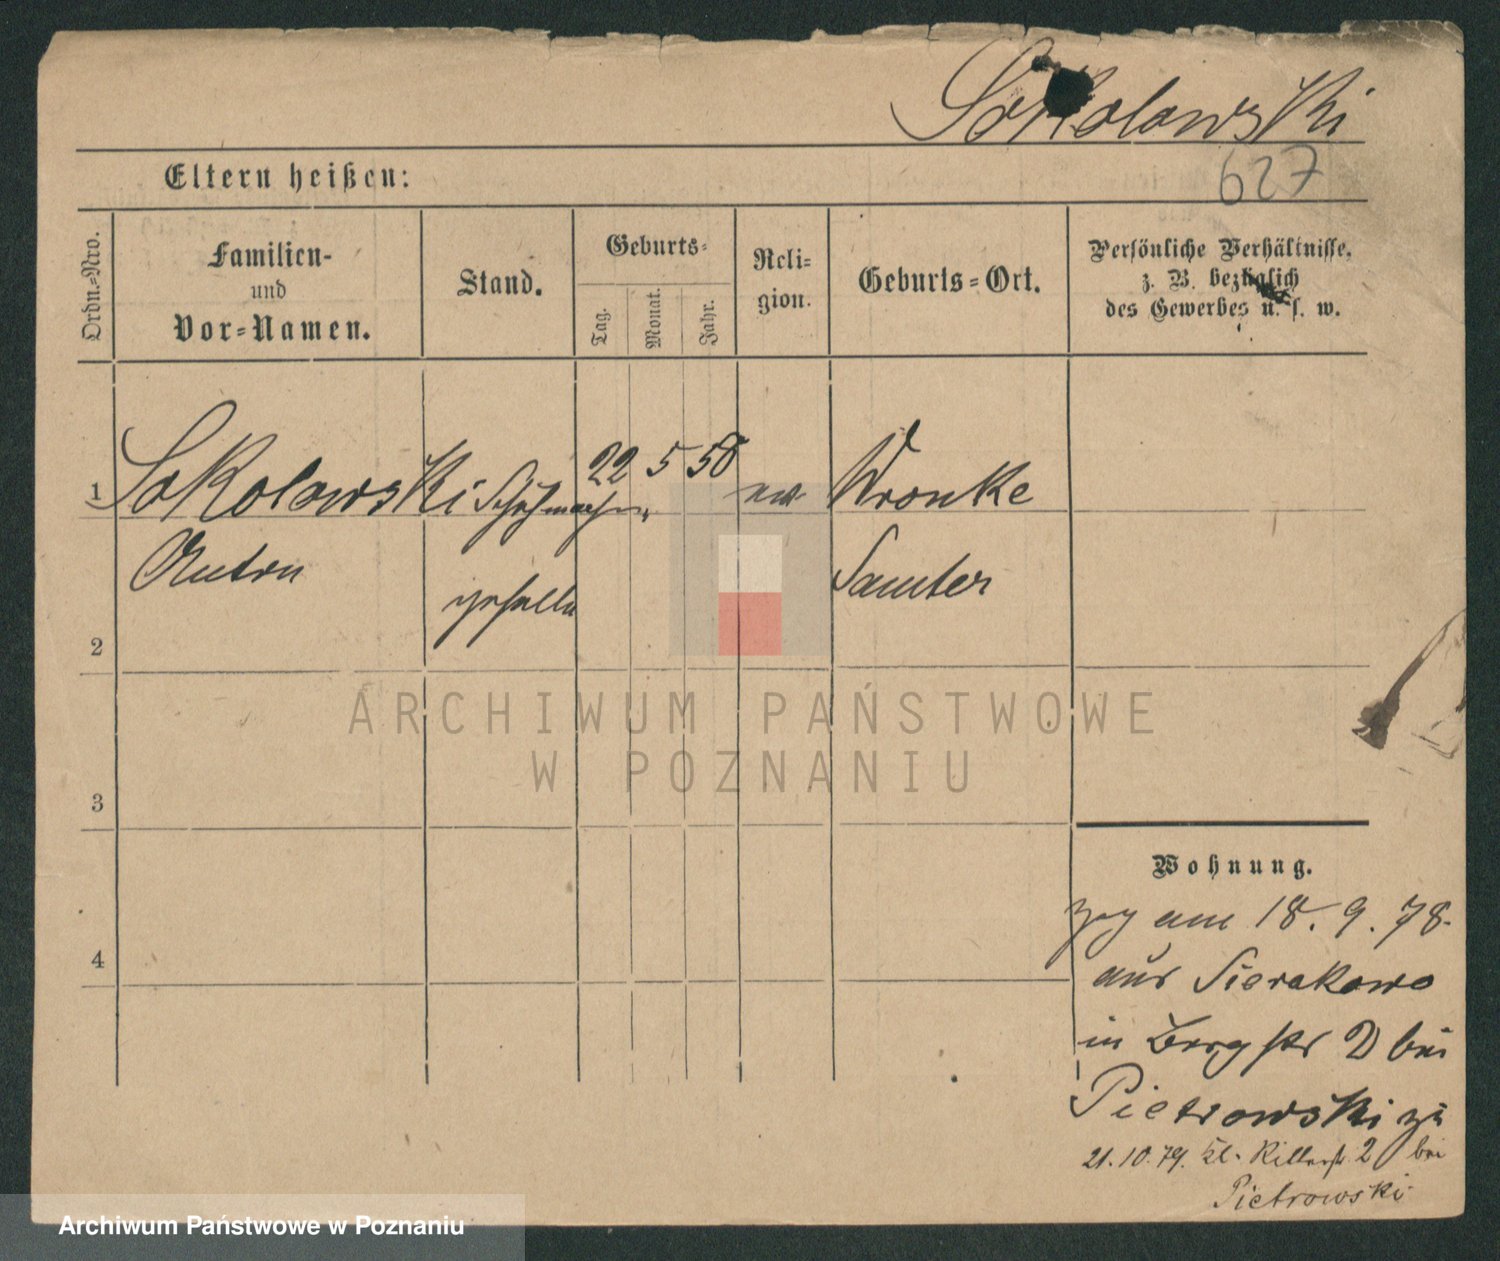 Sokolowski
627
Eltern heißen:
Ordn.-Nro.
Familien-
und
Vor-Namen.
Stand.
Geburts-
Tag.
Monat.
Jahr.
Reli-
gion.
Geburts-Ort.
Persönliche Verhältnisse,
z. B. bezüglich
des Gewerbes u. s. w.
1
Sokolowski
22 5 58
Wronke
Anton
geselle
Samter
2
3
4
Wohnung.
zog am 18.9.78.
aus Sierakowo
in Bergstr 2 bei
Pietrowski
21.10.79. kl. Ritterstr. 2 bei
Pietrowski
ARCHIWUM PAŃSTWOWE
W POZNANIU
Archiwum Państwowe w Poznaniu